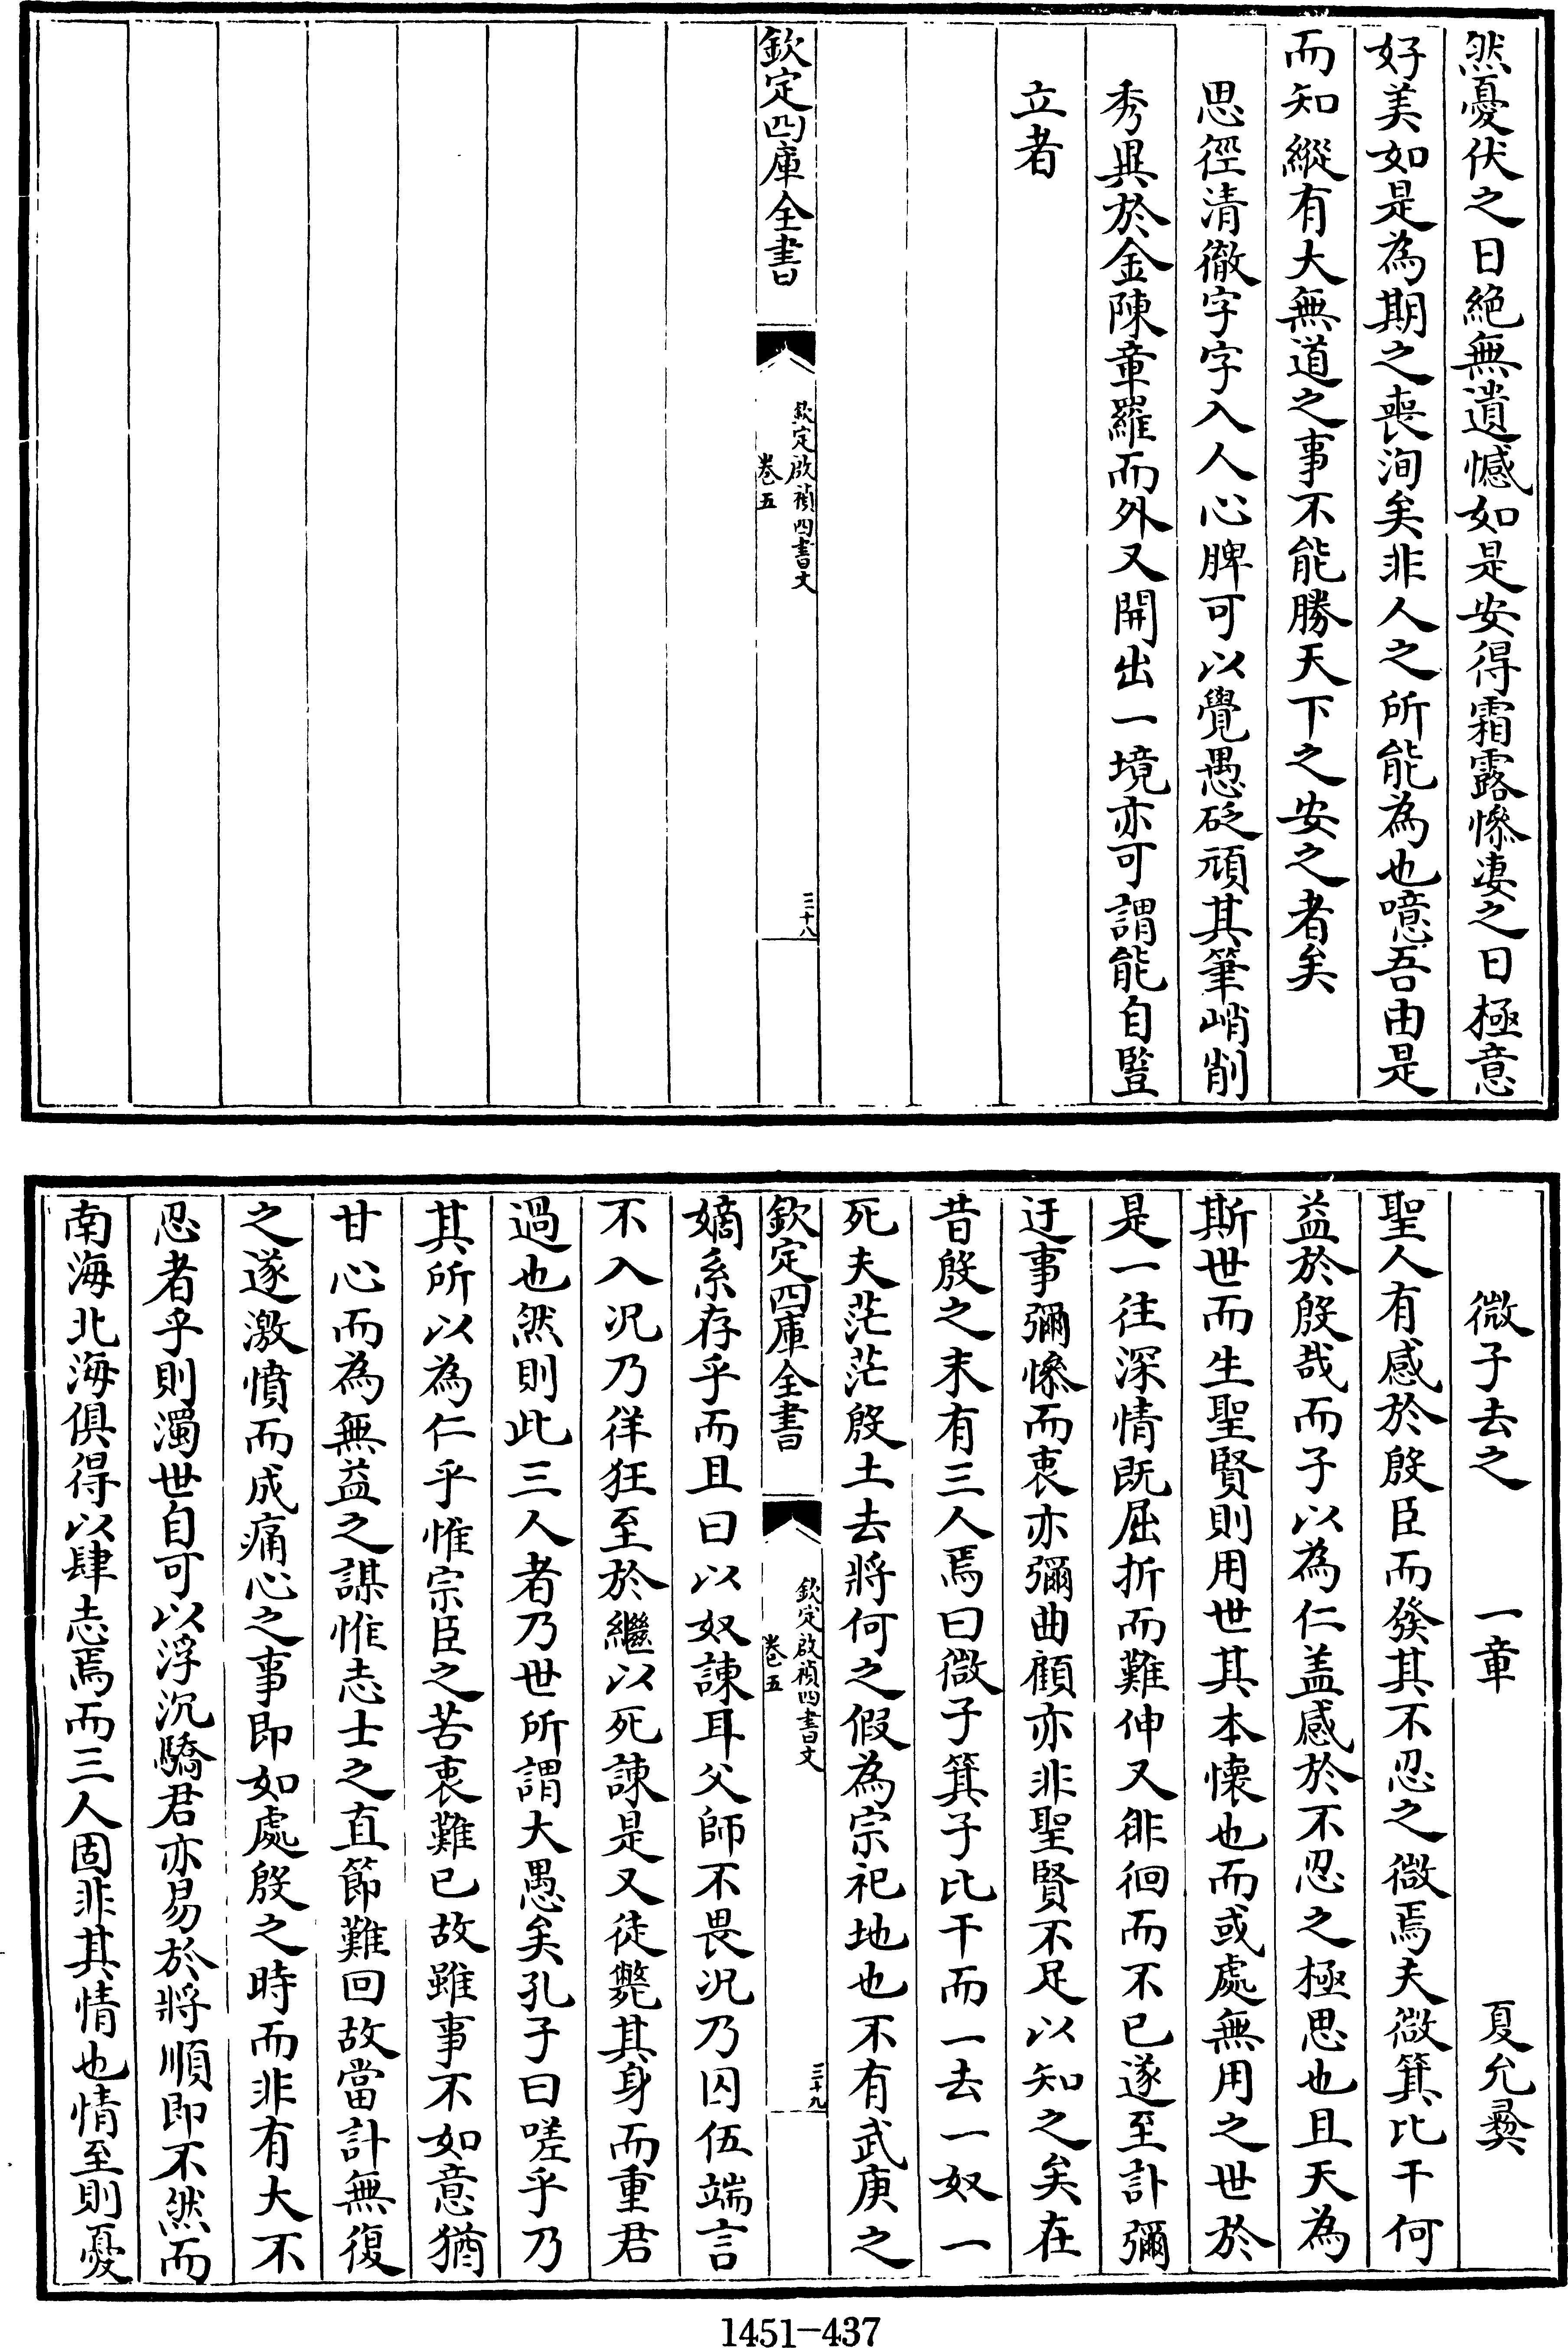 然憂伏之日絶無遺憾如是安得霜露慘凄之日極意
好美如是為期之喪洵矣非人之所能為也噫吾由是
而知縱有大無道之事不能勝天下之安之者矣
思徑清徹字字入人心脾可以覺愚砭頑其筆峭削
秀異於金陳章羅而外又開出一境亦可謂能自豎
立者
欽定四庫全書
欽定啟禎四書文
卷五
三十八
微子去之 一章 夏允彝
聖人有感於殷臣而發其不忍之微焉夫微箕比干何
益於殷哉而子以為仁盖感於不忍之極思也且天為
斯世而生聖賢則用世其本懷也而或處無用之世於
是一往深情既屈折而難伸又徘徊而不已遂至訃彌
迂事彌慘而衷亦彌曲顧亦非聖賢不足以知之矣在
昔殷之末有三人焉曰微子箕子比干而一去一奴一
死夫茫茫殷土去將何之假為宗祀地也不有武庚之
欽定四庫全書
欽定啟禎四書文
卷五
三十九
嫡系存乎而且曰以奴諫耳父師不畏况乃囚伍端言
不入况乃徉狂至於繼以死諫是又徒斃其身而重君
過也然則此三人者乃世所謂大愚矣孔子曰嗟乎乃
其所以為仁乎惟宗臣之苦衷難已故雖事不如意猶
甘心而為無益之謀惟志士之直節難回故當計無復
之遂激憤而成痛心之事即如處殷之時而非有大不
忍者乎則濁世自可以浮沉驕君亦易於將順即不然而
南海北海俱得以肆志焉而三人固非其情也情至則憂
1451-437